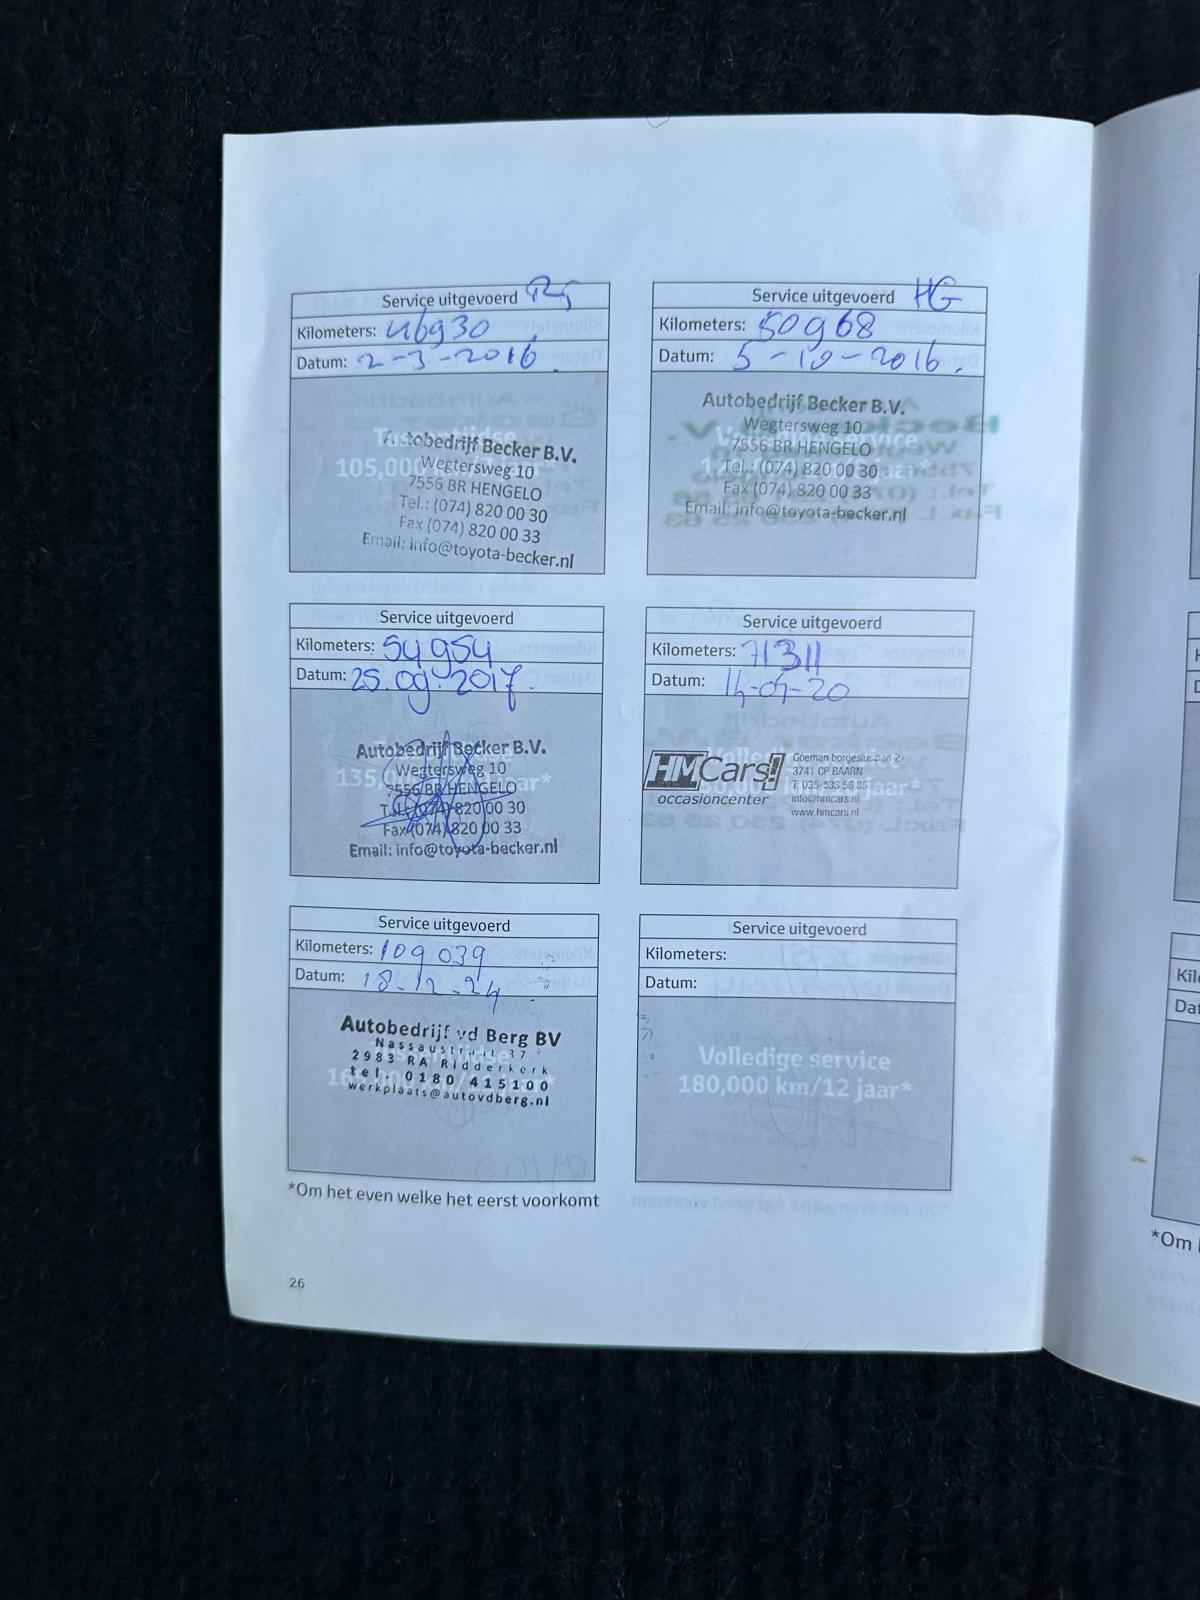 Service uitgevoerd
Kilometers: 46930
Datum: 2-3-2016.
105,000
Autobedrijf Becker B.V.
Wegtersweg 10
7556 BR HENGELO
Tel.: (074) 820 00 30
Fax (074) 820 00 33
Email: info@toyota-becker.nl
Service uitgevoerd HG
Kilometers: 50968
Datum: 5-10-2016.
Autobedrijf Becker B.V.
Wegtersweg 10
7556 BR HENGELO
Tel.: (074) 820 00 30
Fax (074) 820 00 33
Email: info@toyota-becker.nl
Service uitgevoerd
Kilometers: 54954
Datum: 25.09.2017.
Autobedrijf Becker B.V.
Wegtersweg 10
7556 BR HENGELO
Tel.: (074) 820 00 30
Fax (074) 820 00 33
Email: info@toyota-becker.nl
Service uitgevoerd
Kilometers: 71311
Datum: 14-04-20
HMCars!
occasioncenter
3741 CP BAARN
T: 035-533 56 85
info@hmcars.nl
www.hmcars.nl
Service uitgevoerd
Kilometers: 109 039
Datum: 18-12-24
Autobedrijf vd Berg BV
2983 RA Ridderkerk
tel. 0180 415100
werkplaats@autovdberg.nl
Service uitgevoerd
Kilometers:
Datum:
Volledige service
180,000 km/12 jaar*
*Om het even welke het eerst voorkomt
26
*Om